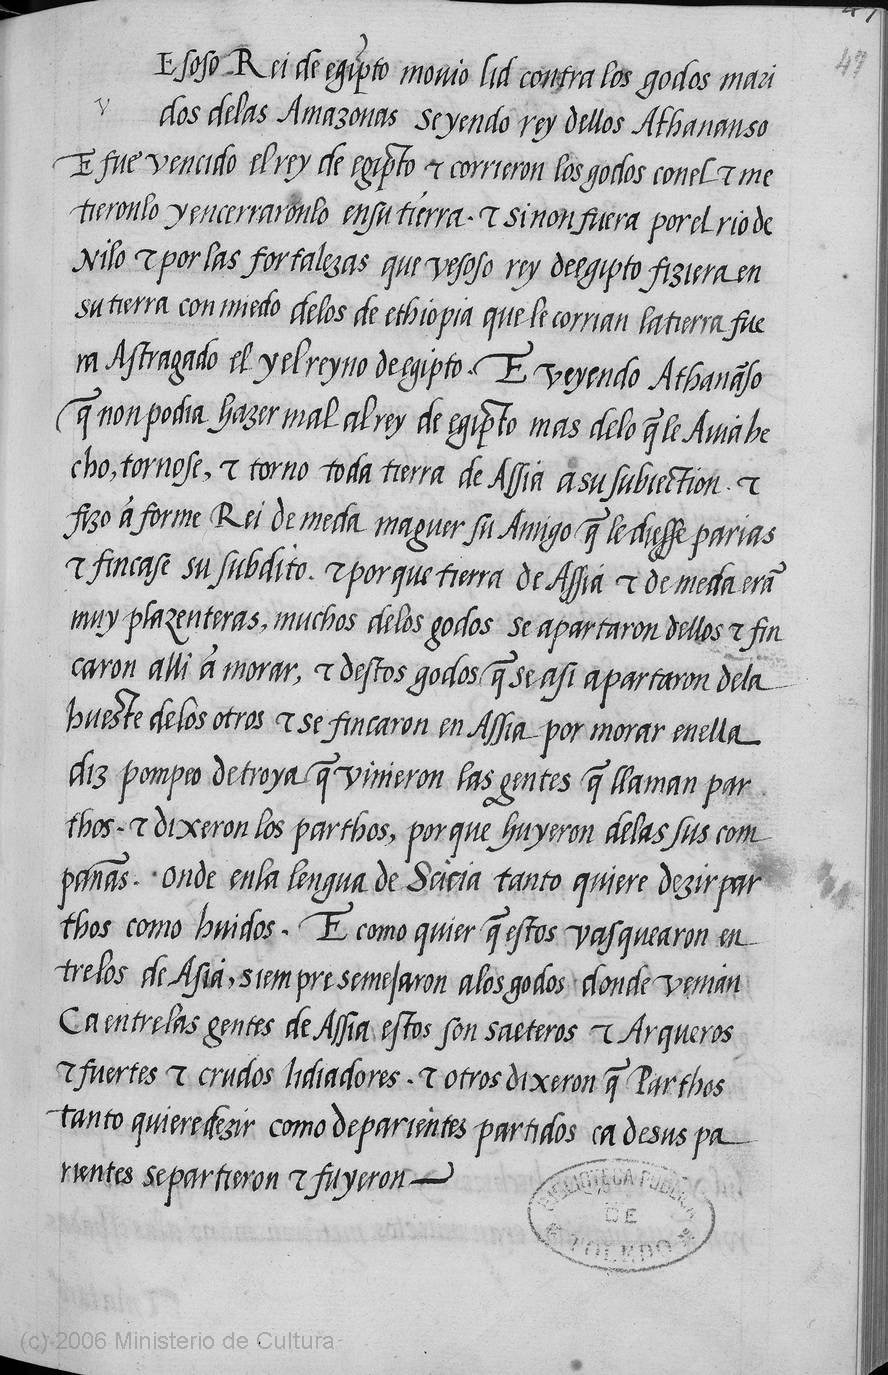 47
47
Esoso Rei de egipto mouio lid contra los godos mari
v
dos delas Amazonas seyendo rey dellos Athananso
E fue vencido el rey de egipto τ corrieron los godos conel τ me
tieronlo yencerraronlo ensu tierra. τ sinon fuera por el rio de
Nilo τ por las fortalezas que vesoso rey deegipto fiziera en
su tierra con miedo delos de ethiopia que le corrian la tierra fue
ra Astragado el y el reyno de egipto. E veyendo Athanāso
q̄ non podia hazer mal al rey de egipto mas delo q̄ le Auia he
cho, tornose, τ torno toda tierra de Assia asu subiection. τ
fizo á forme Rei de meda maguer su Amigo q̄ le diesse parias
τ fincase su subdito. τ por que tierra de Assia τ de meda erā
muy plazenteras, muchos delos godos se apartaron dellos τ fin
caron alli á morar, τ destos godos q̄ se asi apartaron dela
hueste delos otros τ se fincaron en Assia por morar enella
diz pompeo detroya q̄ vinieron las gentes q̄ llaman par
thos. τ dixeron los parthos, porque huyeron delas sus com
pañās. onde enla lengua de Scicia tanto quiere dezir par
thos como huidos. E como quier q̄ estos vasquearon en
trelos de Asia, siempre semejaron alos godos donde venian
Ca entrelas gentes de Assia estos son saeteros τ Arqueros
τ fuertes τ crudos lidiadores. τ otros dixeron q̄ Parthos
tanto quieredezir como deparientes partidos ca desus pa
rientes separtieron τ fuyeron
BIBLIOTECA PUBLICA
DE
TOLEDO
(c) 2006 Ministerio de Cultura